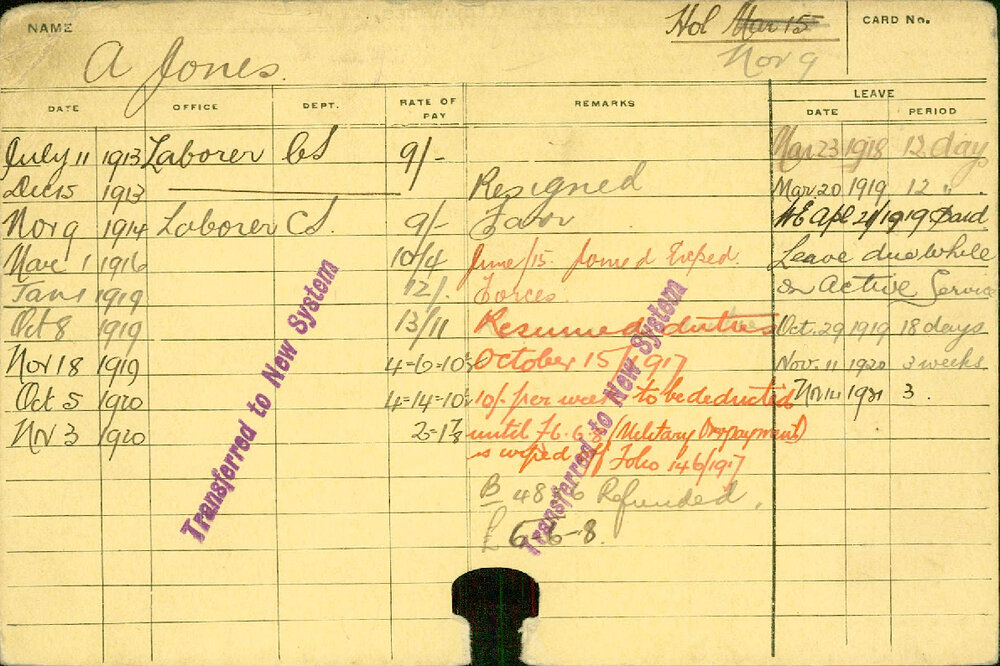 NAME
Hol Mar 15
CARD No.
A Jones.
Nov 9
LEAVE
DATE OFFICE DEPT. RATE OF PAY REMARKS DATE PERIOD
July 11 1913 Laborer CS 9/- Mar 23 1918 12 days
Dec 15 1913 Resigned Mar 20 1919 12 "
Nov 9 1914 Laborer CS. 9/- WE Apl 21/1919 Paid
Mar 1 1916 10/4 June/15. Joined Exped. Leave due while
Jan 1 1919 12/. Forces on Active Service
Oct 8 1919 13/11 Resumed duties Oct. 29 1919 18 days
Nov 18 1919 4=6=10½ October 15/1917 Nov. 11 1920 3 weeks
Oct 5 1920 4=14=10½ 10/- per week to be deducted Nov 14 1921 3.
Nov 3 1920 until £6.6.8 (Military Overpayment)
is wiped off Folio 146/1917
Refunded.
£6-6-8.
Transferred to New System
Transferred to New System